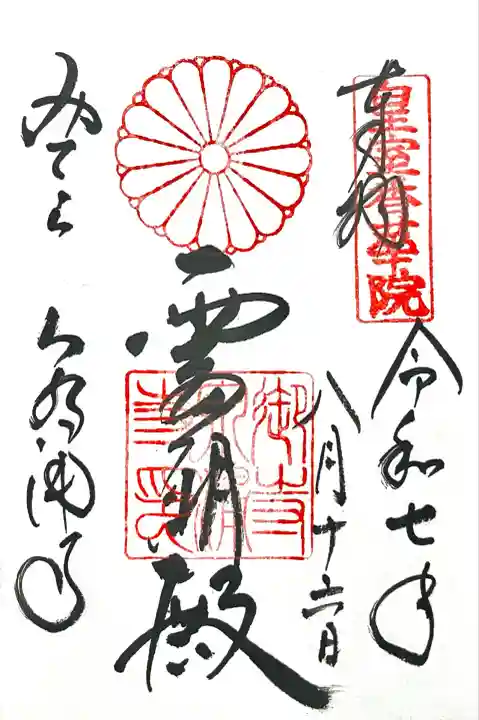 皇室香華院
奉拝
令和七年
八月十六日
霊明殿
御寺泉涌寺印
みてら
泉涌寺